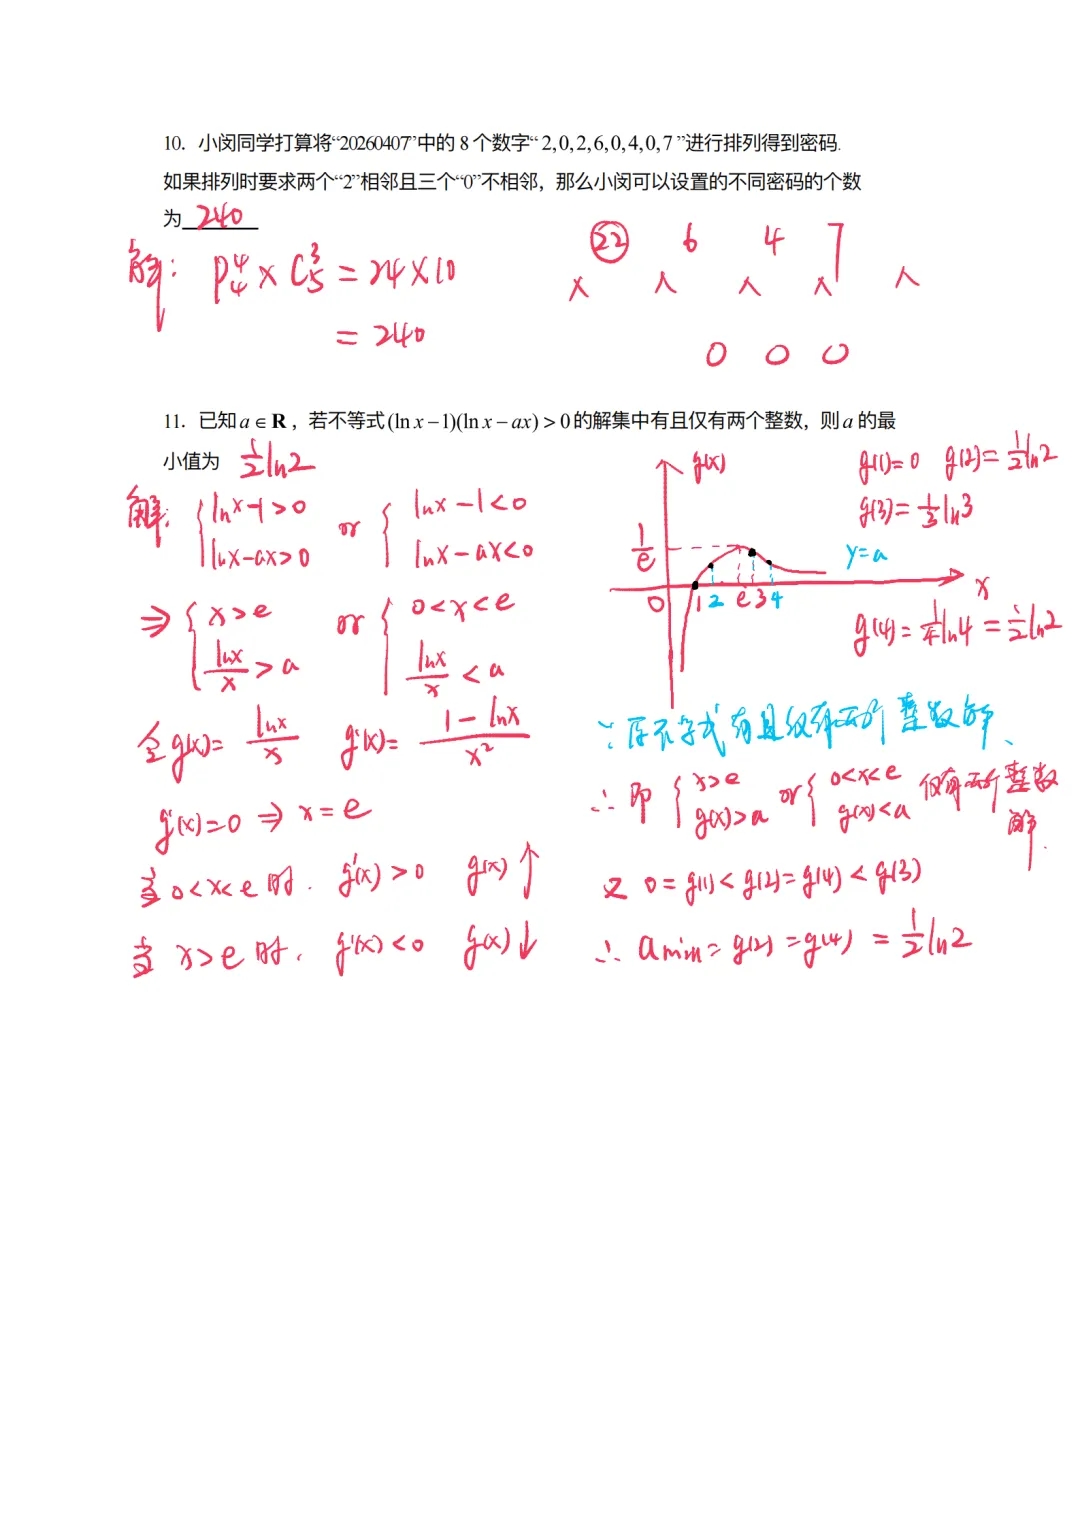 10. 小闵同学打算将“20260407”中的 8 个数字“ 2,0,2,6,0,4,0,7 ”进行排列得到密码.
如果排列时要求两个“2”相邻且三个“0”不相邻，那么小闵可以设置的不同密码的个数
为 240
解: P₄⁴ × C₅³ = 24×10
= 240
22 6 4 7
0 0 0
11. 已知 a ∈ R ，若不等式 (ln x − 1)(ln x − ax) > 0 的解集中有且仅有两个整数，则 a 的最
小值为 1/2 ln2
解: { lnx-1>0 or { lnx-1<0
lnx-ax>0 lnx-ax<0
⇒ { x>e or { 0<x<e
lnx/x > a lnx/x < a
令 g(x)= lnx/x g'(x)= 1-lnx/x²
g'(x)=0 ⇒ x=e
当 0<x<e 时. g'(x)>0 g(x)↑
当 x>e 时. g'(x)<0 g(x)↓
g(x)
1/e
0 1 2 e 3 4 x
g(1)=0 g(2)= 1/2 ln2
g(3)= 1/3 ln3
y=a
g(4)= 1/4 ln4 = 1/2 ln2
∵ 原不等式有且仅有两个整数解、
∴ 即 { x>e or { 0<x<e 仅有两个整数
g(x)>a g(x)<a 解.
又 0=g(1)<g(2)=g(4)<g(3)
∴ amin=g(2)=g(4) = 1/2 ln2